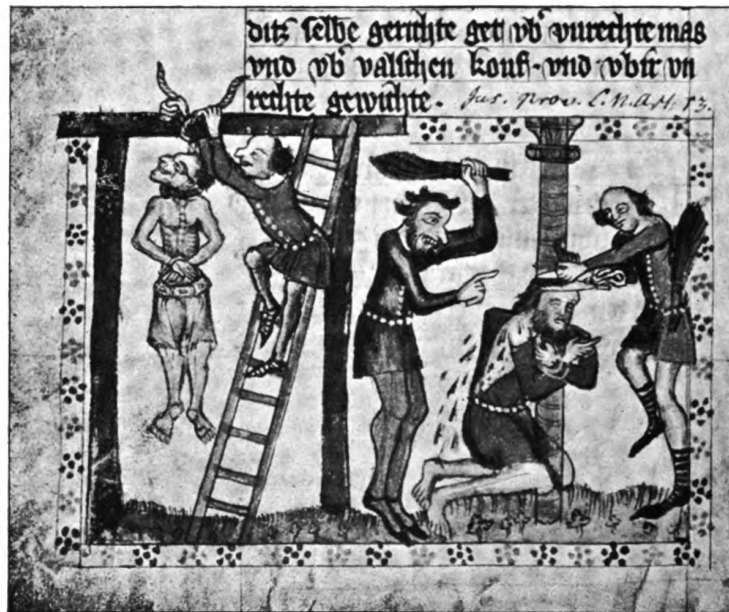 ditz selbe gerichte get vb vnrechte mas
vnd vb valschen kouf · vnd vbir vn
rechte gewichte · Jus. prov. L. II. Art. 13.